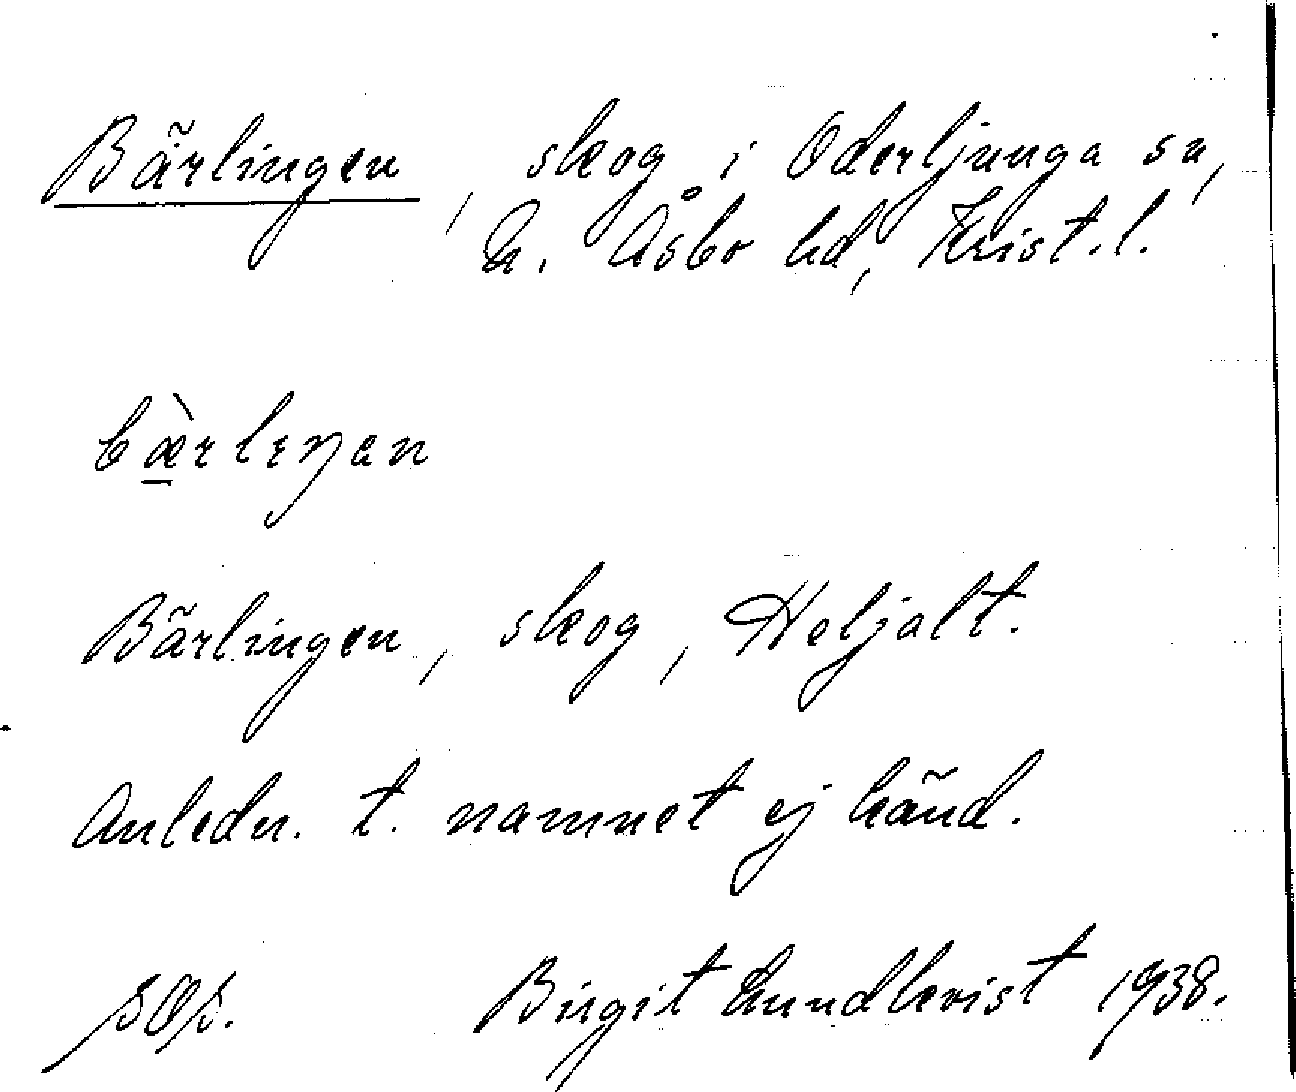 Bärlingen, skog i Oderljunga sn,
N. Åsbo hd, Krist. l.
bæ̀rlıŋan
Bärlingen, skog, Heljalt.
Anledn. t. namnet ej känd.
Birgit Lundkvist 1938.